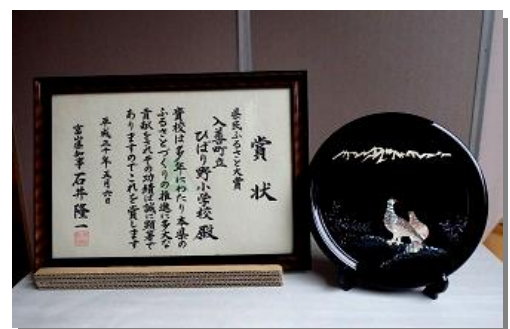 賞状
県民ふるさと大賞
入善町立
ひばり野小学校殿
貴校は多年にわたり本県の
ふるさとづくりの推進に多大な
貢献をされその功績は誠に顕著で
ありますのでこれを賞します
平成三十年五月六日
富山県知事 石井隆一